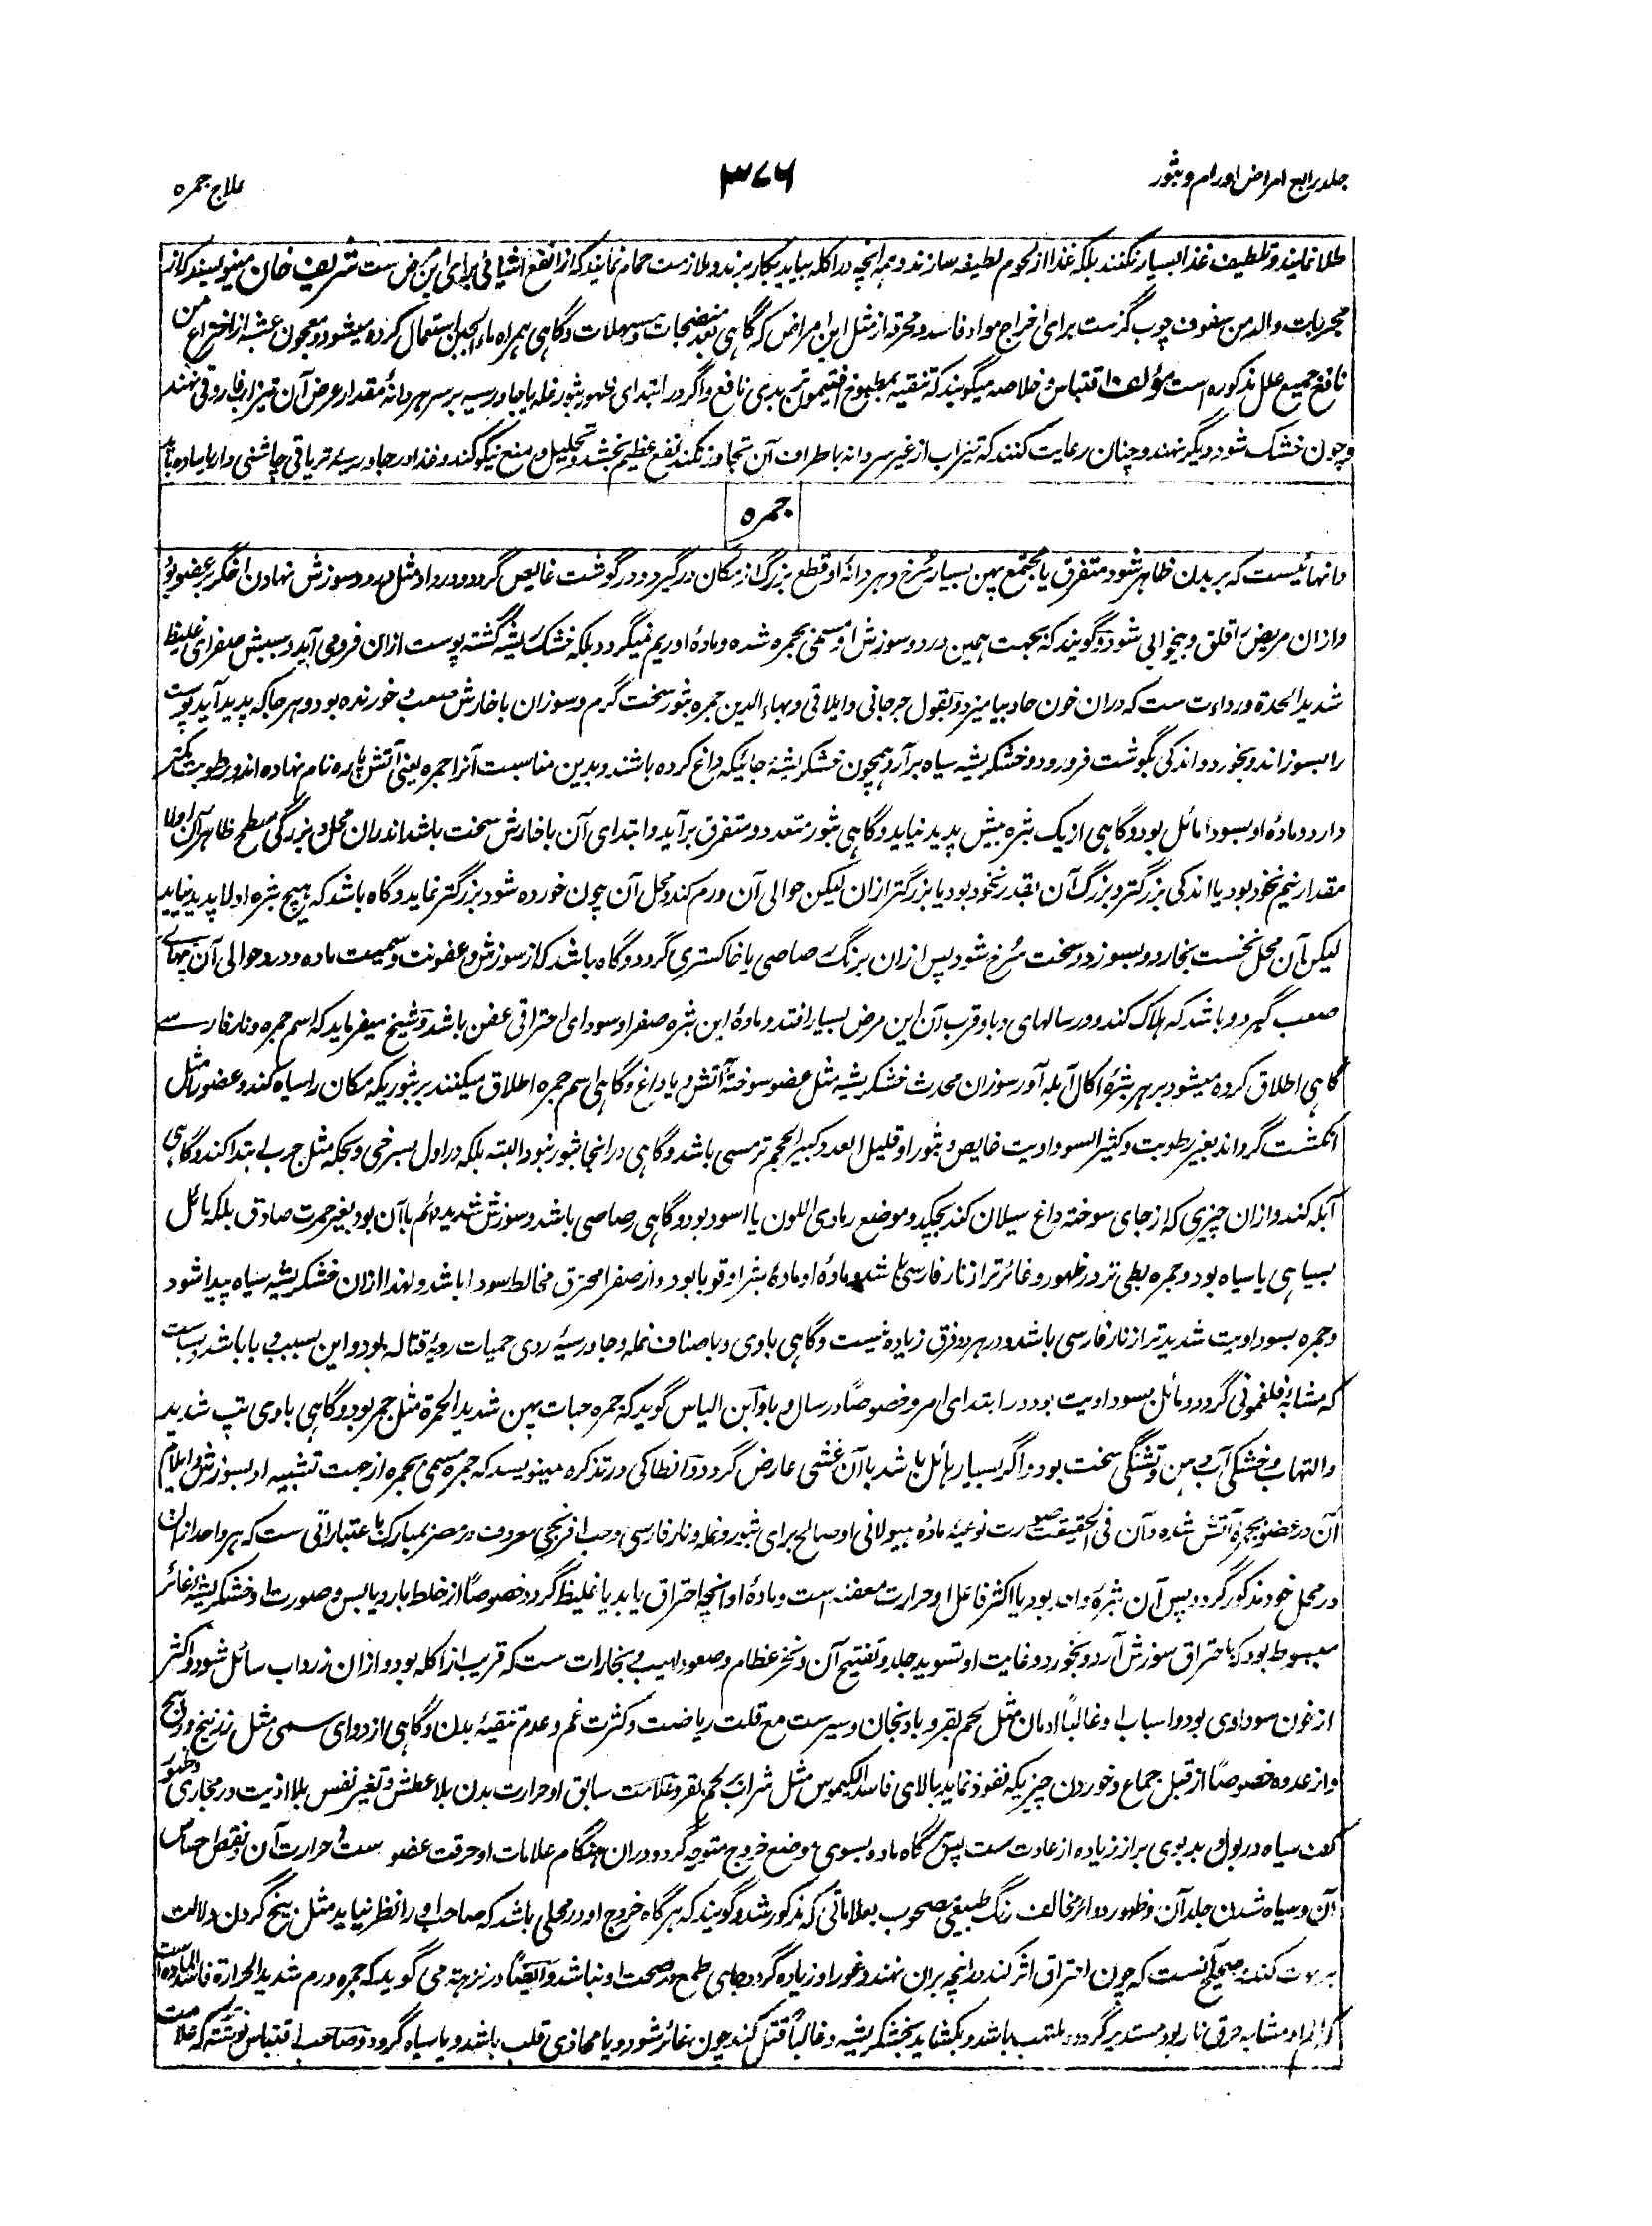 جلد رابع امراض اورام و بثور
۳۷۶
علاج جمره
طلا نمایند و تلطیف غذا بسیار نکنند بلکه غذا از لحوم لطیفه سازند و همه انچه در اکله بیاید بکار برند و ملازمت حمام نمایند که از انفع اشیا برای این مرض ست شریف خان مینویسند که از
مجربات والد من سفوف چوب گزست برای اخراج مواد فاسد و محرقه از مثل این امراض که گاهی بعد منضجات و مسهلات و گاهی همراه ماء الجبن استعمال کرده میشود و معجون عشبه از اختراع من
نافع جمیع علل مذکوره است مؤلف اقتباس و خلاصه میگویند که تنقیه بمطبوخ افتیمون تربدی نافع و اگر در ابتدای ظهور بثور نمله یا جاورسیه بر سر هر دانهٔ مقدار عرض آن تیزاب فاروقی نهند
و چون خشک شود دیگر نهند و چنان رعایت کنند که تیزاب از غیر سر دانه باطراف آن تجاوز نکند نفع عظیم بخشد و تحلیل و منع نیکو کند و غذا در جاورسیه تریاقی چاشنی دار یا ساده
جمره
دانهائیست که بر بدن ظاهر شود متفرق یا مجتمع پهن بسیار سرخ و هر دانهٔ او قطع بزرگ از مکان در گیرد و در گوشت غایص گردد و درد او مثل درد و سوزش نهادن اخگر بر عضو بود
و ازان مریض را قلق و بیخوابی شود و گویند که بجهت همین درد و سوزش او مسمی بجمره شده و مادهٔ او ریم نمیگردد بلکه خشک ریشه گشته پوست ازان فرو می آید و سببش صفرای غلیظ
شدید الحدة و رداءت ست که دران خون حاد بیامیزد و بقول جرجانی و ایلاقی و بهاء الدین جمره بثور سخت گرم و سوزان با خارش صعب و خورنده بود و هر جا که پدید آید پوست
را بسوزاند و بخورد و اندکی بگوشت فرو رود و خشکریشه سیاه برآرد همچون خشکریشهٔ جائیکه داغ کرده باشند و بدین مناسبت آنرا جمره یعنی آتش پاره نام نهاده اند و رطوبت کمتر
دارد و مادهٔ او بسودا مائل بود و گاهی از یک بثره بیش پدید نیاید و گاهی بثور متعدد و متفرق برآید و ابتدای آن با خارش سخت باشد اندران محل و بزرگی سطح ظاهر آن اولا
مقدار نیم نخود بود یا اندکی بزرگتر و بزرگ آن بقدر نخود بود یا بزرگتر ازان لیکن حوالی آن ورم کند و محل آن چون خورده شود بزرگتر نماید و گاه باشد که هیچ بثره اولا پدید نیاید
لیکن آن محل نخست بخارد و بسوزد و سخت سرخ شود پس ازان برنگ رصاصی یا خاکستری گردد و گاه باشد که از سوزش و عفونت و سمیت ماده و درد حوالی آن تپهای
صعب گیرد و باشد که هلاک کند و در سالهای وبا و قرب آن این مرض بسیار افتد و مادهٔ این بثره صفرا و سودای احتراقی عفن باشد و شیخ میفرماید که اسم جمره و نار فارسی
گاهی اطلاق کرده میشود بر هر بثرهٔ اکال آبله آور سوزان محدث خشکریشه مثل عضو سوختهٔ آتش و یا داغ و گاهی اسم جمره اطلاق میکنند بر بثوریکه مکان را سیاه کند و عضو را مثل
انگشت گرداند بغیر رطوبت و کثیر السوداویت غایص و بثور او قلیل العدد و کبیر الحجم ترمسی باشد و گاهی در انجا بثور نبود البته بلکه در اول بسرخی و بحکه مثل جرب ابتدا کند و گاهی
آبله کند و ازان چیزی که از جای سوخته داغ سیلان کند بچکد و موضع رمادی اللون یا اسود بود و گاهی رصاصی باشد و سوزش شدید دائم با آن بود بغیر حمرت صادق بلکه مائل
بسیاهی یا سیاه بود و جمره بطی تر در ظهور و غائر تر از نار فارسی باشد و مادهٔ او مادهٔ بثر او قوبا بود و از صفرا محترق مخالط سودا باشد و لهذا ازان خشکریشه سیاه پیدا شود
و جمره بسوداویت شدید تر از نار فارسی باشد و در هر دو فرق زیاده نیست و گاهی با وی و باصناف نمله و جاورسیهٔ ردی حمیات ردیهٔ قتاله بود و این بسبب وبا باشد و بساست
که مشابه فلغمونی گردد و مائل بسوداویت بود در ابتدای امر و خصوصاً در سال وبا و ابن الیاس گوید که جمره حبات پهن شدید الحمرة مثل جمر بود و گاهی با وی تپ شدید
و التهاب و خشکی آب دهن و تشنگی سخت بود و اگر بسیار هائل باشد با آن غشی عارض گردد و انطاکی در تذکره مینویسد که جمره مسمی بجمره از جهت تشبیه او بسوزش و ایلام
آن در عضو بجمرهٔ آتش شده و آن فی الحقیقت صورت نوعیهٔ مادهٔ هیولانی او صالح برای بثور و نمله و نار فارسی و حب افرنجی معروف در مصر بمبارک باعتباراتی ست که هر واحد ازان
در محل خود مذکور گردد پس آن بثره واحد بود یا اکثر فاعل او حرارت معفنه است و مادهٔ او انچه احتراق یابد یا غلیظ گردد خصوصاً از خلط بارد یابس و صورت او خشکریشهٔ غائر
مبسوط بود که باحتراق سوزش آرد و بخورد و غایت او تسوید جلد و تفتیح آن و نخر عظام و صعود لهیب و بخارات ست که قریب از اکله بود و ازان زرداب سائل شود و اکثر
از خون سوداوی بود و اسباب او غالباً ادمان مثل لحم بقر و بادنجان و سیرست مع قلت ریاضت و کثرت غم و عدم تنقیهٔ بدن و گاهی از دوای سمی مثل زرنیخ و رهج
و از عدوه خصوصاً از قبل جماع و خوردن چیزیکه نفوذ نماید بالای فاسد الکیموس مثل شراب بر لحم بقر و علامت سابق او حرارت بدن بلا عطش و تغیر نفس بلا اذیت در مجاری و ظهور
سیاه در بول و بدبوی براز زیاده از عادت ست پس گاه ماده بسوی موضع خروج متوجه گردد دران هنگام علامات او حرقت عضو ست و حرارت آن و نقص احساس
آن و سیاه شدن جلد آن و ظهور دوائر مخالف رنگ طبیعی مصحوب بعلاماتی که مذکور شد و گویند که هرگاه خروج او در محلی باشد که صاحب او را نظر نیاید مثل بیخ گردن دلالت
بر موت کند و صحیح آنست که چون احتراق اثر کند در انچه بران نهند و غور او زیاده گردد جای طمع در صحت او نباشد و ایضاً در نزهته می گوید که جمره ورم شدید الحرارة فاسد الماده است
که الم او مشابه حرق نار بود مستدیر گردد و ملتهب باشد و بکشاید بخشکریشه و غالباً قتل کند چون غائر شود و یا محاذی قلب باشد و یا سیاه گردد و صاحب اقتباس نوشته که علامت